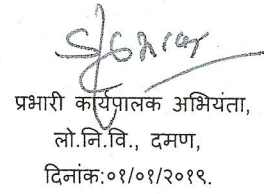 प्रभारी कार्यपालक अभियंता,
लो.नि.वि., दमण,
दिनांक:०१/०१/२०१९.